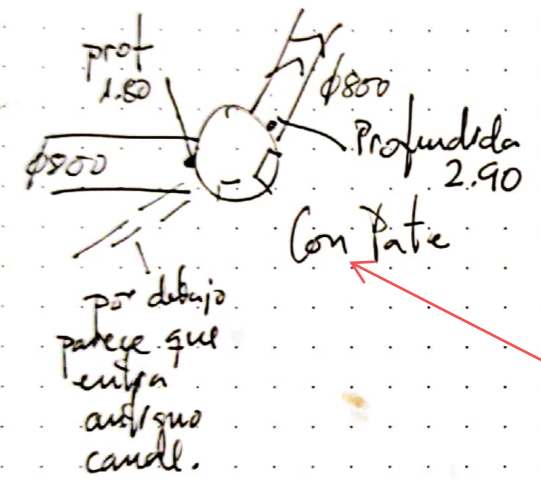 prof
1.80
ϕ800
ϕ800
Profundida
2.90
Con Pate
por debajo
parece que
entra
antiguo
canal.